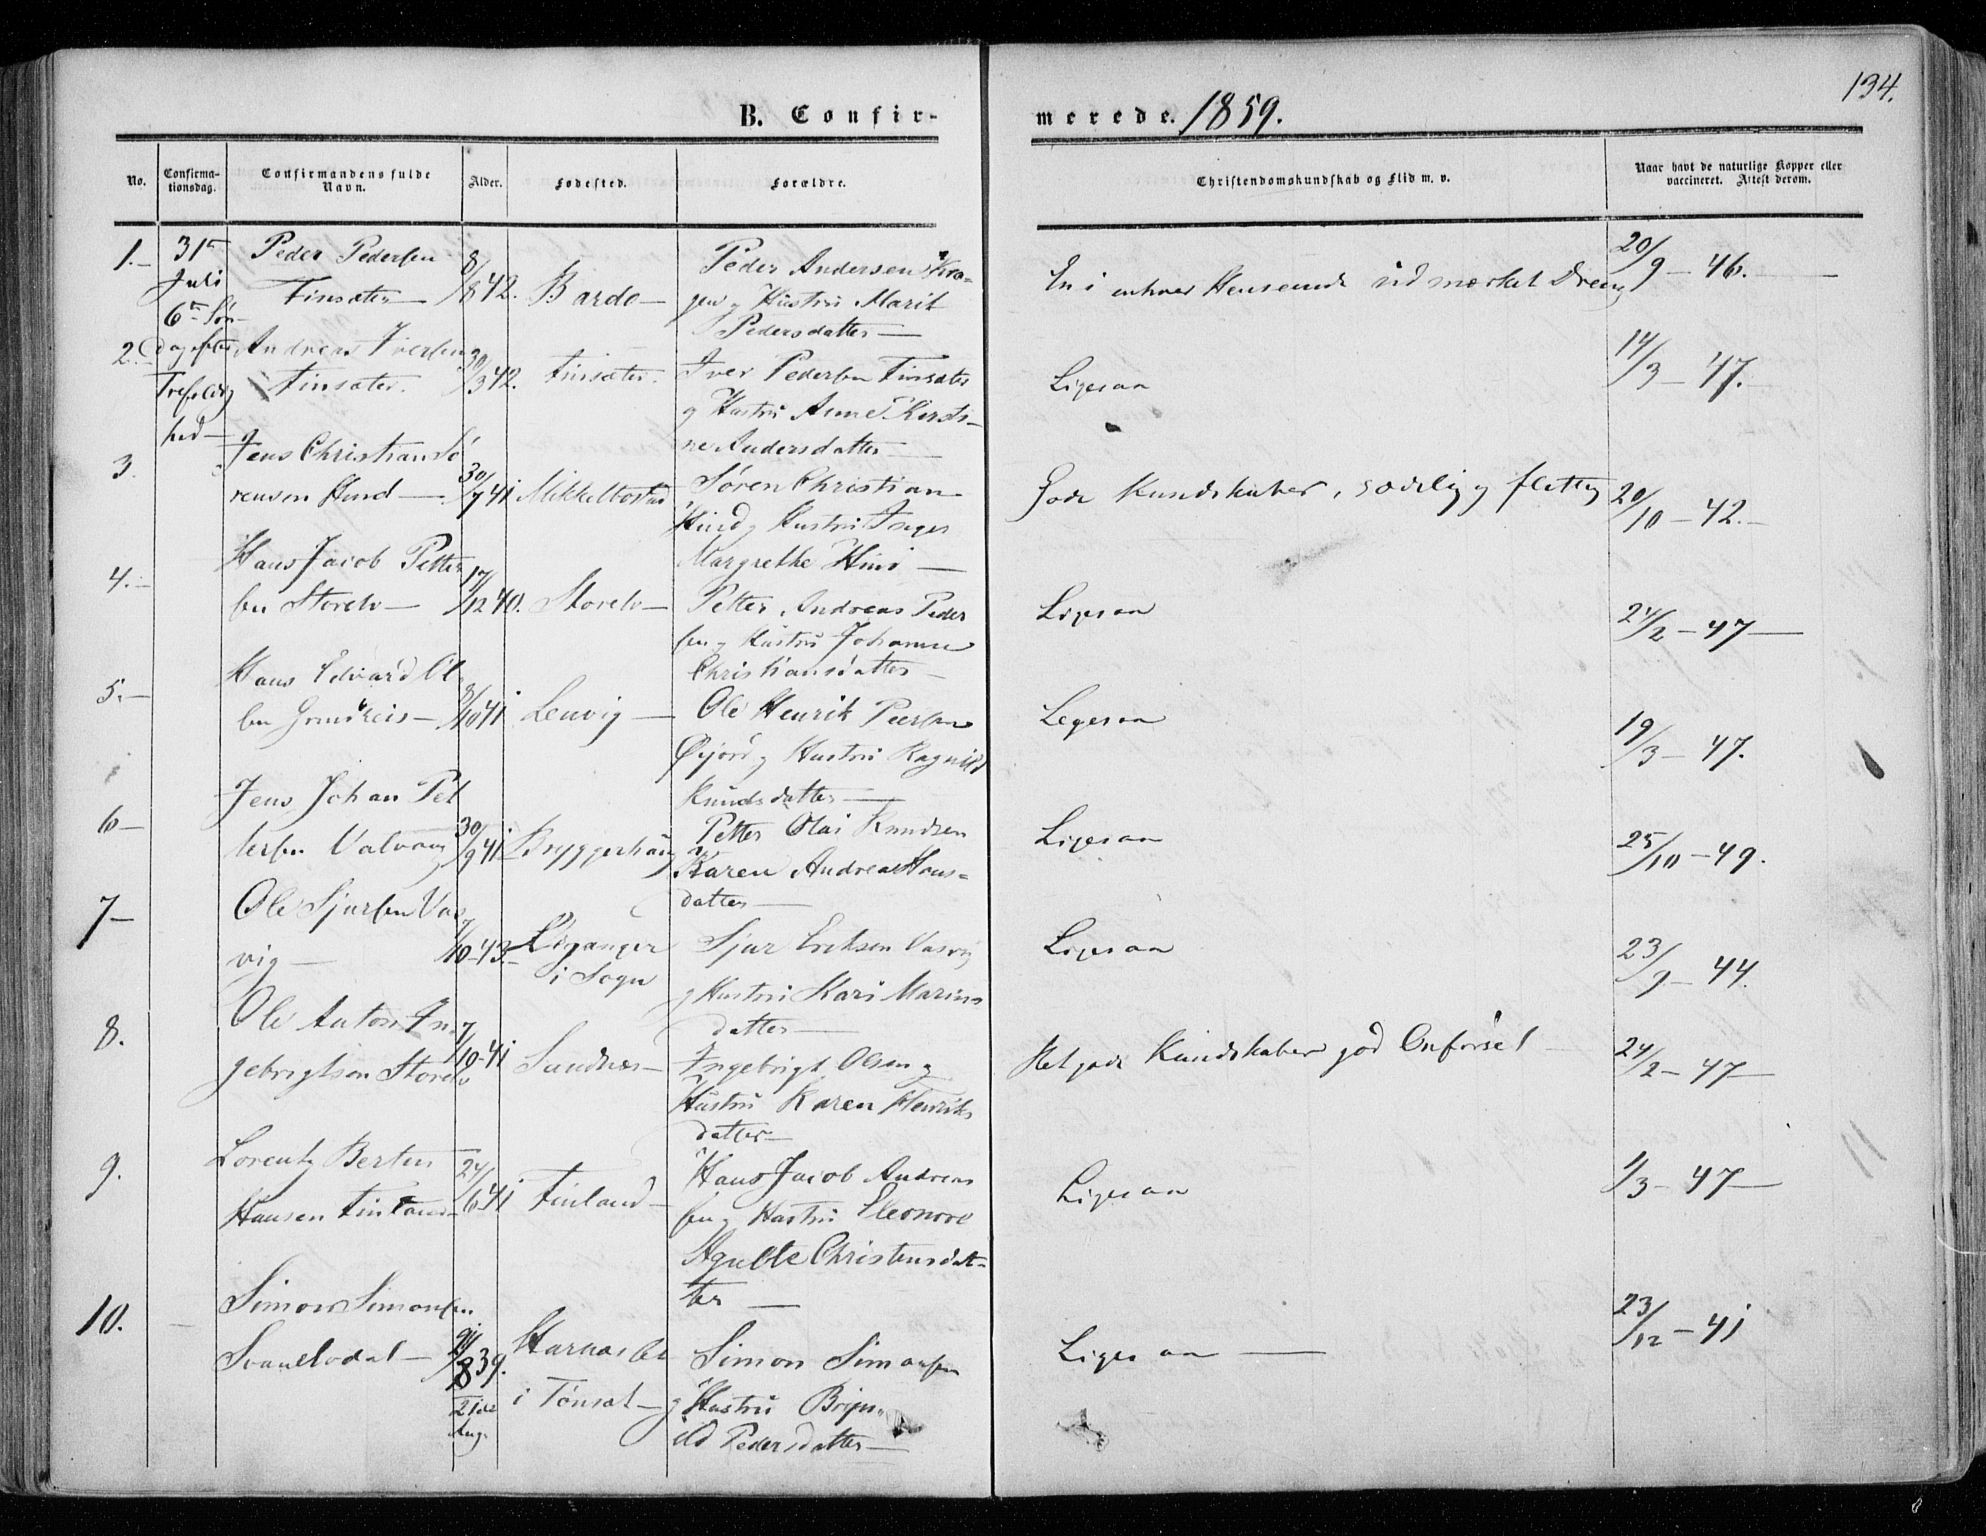 134.
B. Confir-
merede. 1859.
No.
Confirma-
tionsdag.
Confirmandens fulde
Navn.
Alder.
Fødested.
Forældre.
Christendomskundskab og Flid m. v.
Naar havt de naturlige Kopper eller
vaccineret. Attest derom.
1.
31te
Juli
6te Søn-
dag efter
Trefoldig
hed
Peder Pedersen
Finsæter
8/8 42.
Bardo
Peder Andersen Kro-
gen og Hustru Marit
Pedersdatter
En i enhver Henseende udmærket Dreng
20/9 - 46.
2.
Andreas Iversen
Finsæter.
30/3 42.
Finsæter.
Iver Pedersen Finsæter
og Hustru Anne Kirsti-
ne Andersdatter
Ligesaa
14/3 - 47.
3.
Jens Christian Sø
rensen Hind
30/7 41
Mikkelbostad
Søren Christian
Hind og Hustru Inger
Margrethe Hind
Gode Kundskaber, sædelig og flittig
20/10 - 42.
4.
Hans Jacob Petter
sen Storelv
17/12 40.
Storelv
Petter Andreas Peder
sen og Hustru Johanne
Christiansdatter
Ligesaa
24/2 - 47
5.
Hans Edvard Ol
sen Grundreis
8/10 41
Lenvig
Ole Henrik Peersen
Øijord og Hustru Ragnild
Knudsdatter
Legesaa
19/3 - 47.
6
Jens Johan Pet
tersen Valvaag
30/9 41
Bryggerhaug
Petter Olai Knudsen
Karen Andrea Hans-
datter
Ligesaa
25/10 - 49.
7
Ole Sjursen Vas
vig
7/10 - 43.
Leganger
i Sogn
Sjur Eriksen Vasvig
og Hustru Kari Marius
datter
Ligesaa
23/9 - 44.
8.
Ole Anton In
gebrigtsen Storelv
7/10 - 41
Sandnæs
Ingebrigt Olsen og
Hustru Karen Henriks
datter
Ret gode Kundskaber god Opførsel
24/2 - 47
9.
Lorentz Bertin
Hansen Finland
24/6 41
Finland
Hans Jacob Andreas
sen og Hustru Eleonore
Agnette Christensdat-
ter
Ligesaa
1/3 - 47
10.
Simon Simonsen
Svanelvdal
8 39.
21de
Aug.
i Tønset
Simon Simonsen
og Hustru Bryn-
ild Pedersdatter
Ligesaa
23/12 - 41